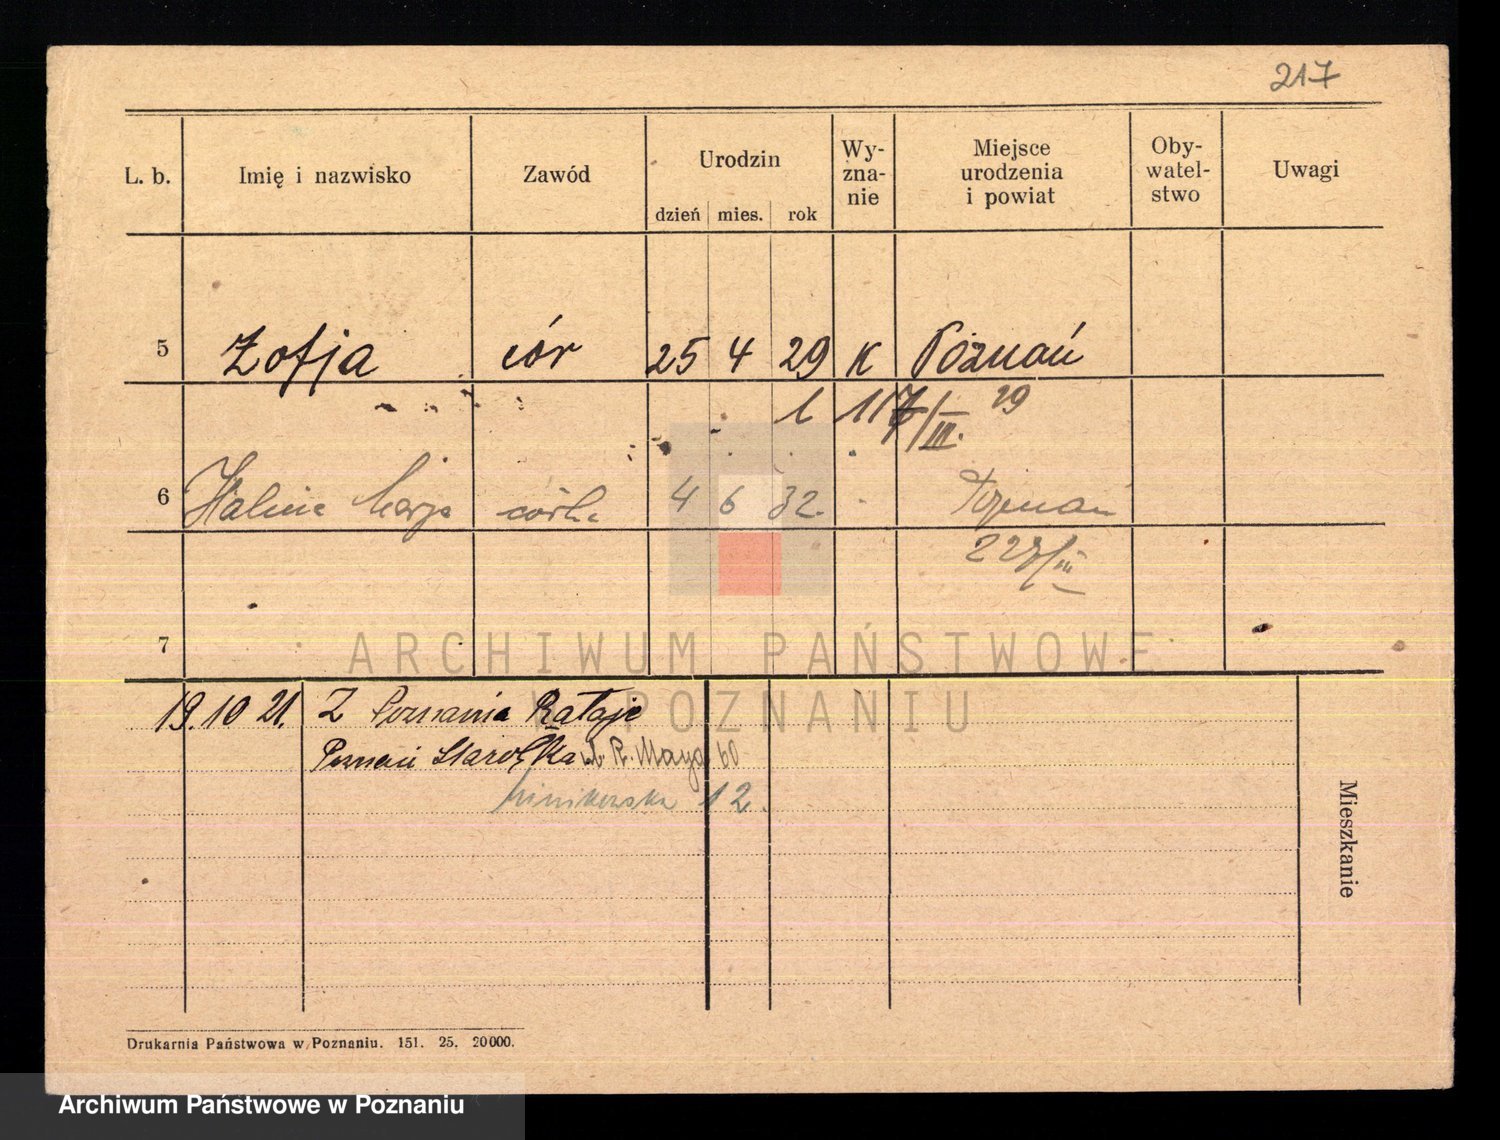 217
L. b. Imię i nazwisko Zawód Urodzin Wy-zna-nie Miejsce urodzenia i powiat Oby-watel-stwo Uwagi
dzień mies. rok
5 Zofja cór 25 4 29 K Poznań
29
III.
6 Halina córka 4 6 32. Poznań
III
7
ARCHIWUM PAŃSTWOWE
W POZNANIU
19.10 21. Z Poznania Rataje
Poznań Starołęka ul. R. Maya 60
Minikowska 12.
Mieszkanie
Drukarnia Państwowa w Poznaniu. 151. 25. 20000.
Archiwum Państwowe w Poznaniu